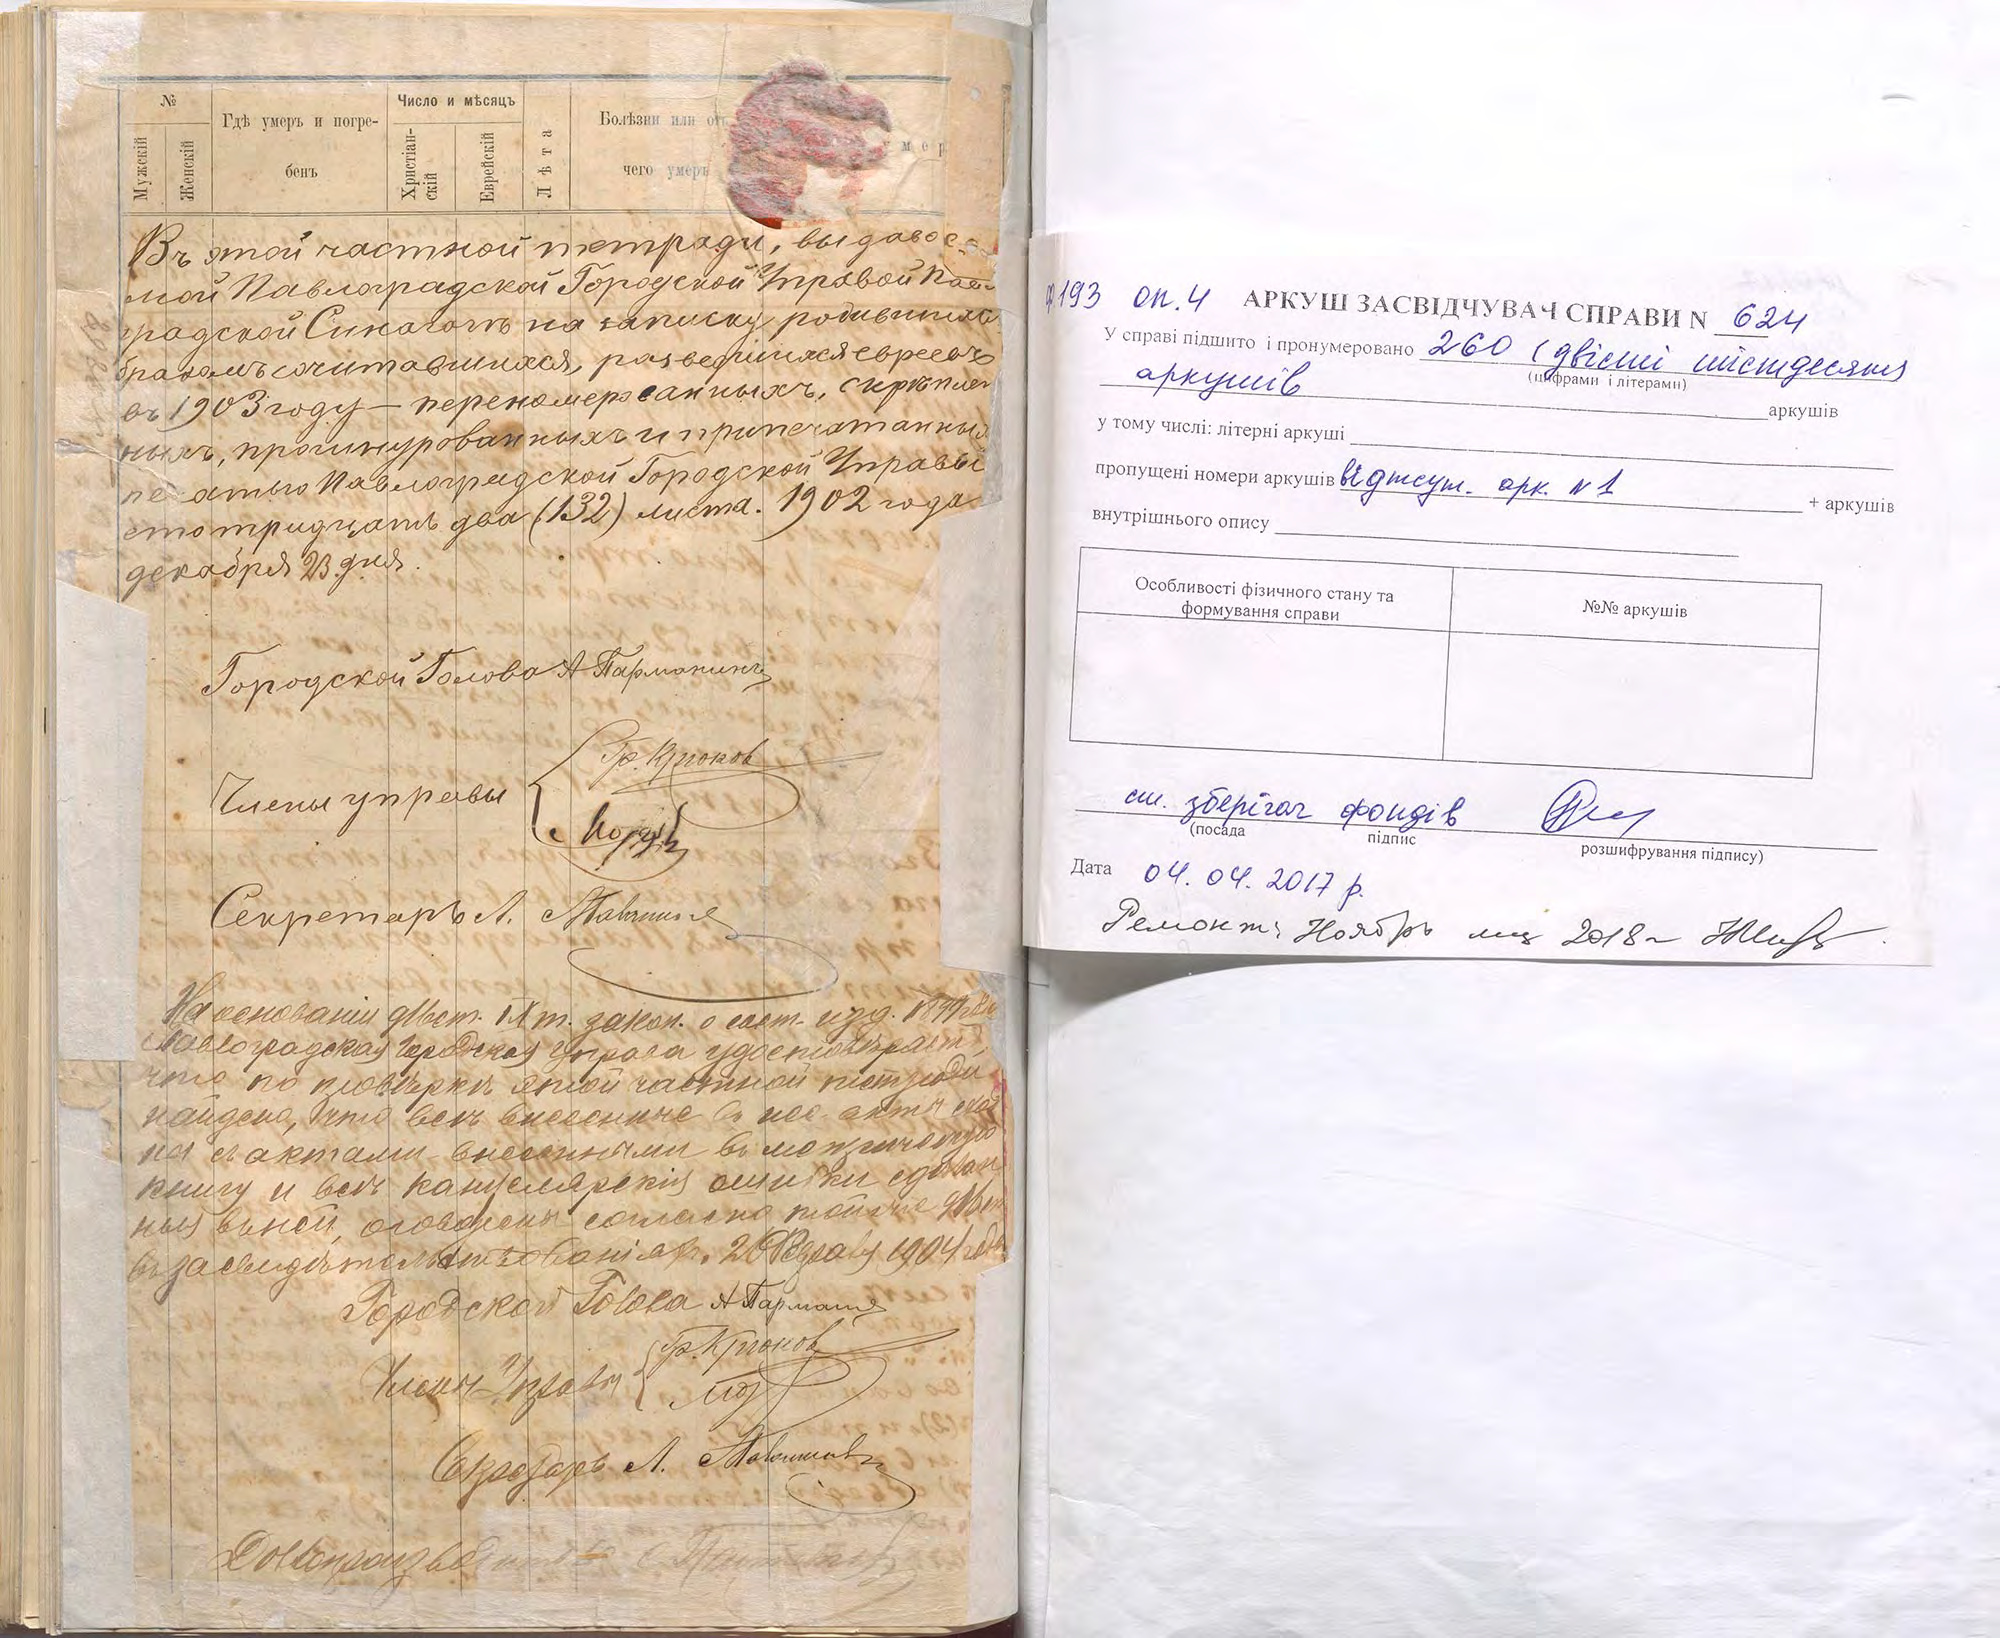 №
Мужскій
Женскій
Гдѣ умеръ и погре-
бенъ
Число и мѣсяцъ
Христіан-
скій
Еврейскій
Лѣта
Болѣзни или отъ
чего умеръ
умер
Въ этой частной тетради, выдавае-
мой Павлоградской Городской Управой Павло
градской Синагогѣ на записку родившихся
бракомъ сочитавшихся, разведшихся евреевъ
въ 1903 году — перенумерованныхъ, скрѣплен
ныхъ, прошнурованныхъ и припечатанных
печатью Павлоградской Городской Управы
сто тридцать два (132) листа. 1902 года
декабря 23 дня.
Городской Голова А Парманинъ
Члены управы
Гр. Крюков
Секретарь Л.
На основаніи ст. IX т. закон. о сост. изд. 1899 года
Павлоградская Городская Управа удостовѣряетъ,
что по повѣркѣ этой частной тетради
найдено, что всѣ внесенные в нее акты сход
ны съ актами внесенными въ метрическую
книгу и всѣ канцелярскія ошибки сдѣлан
ныя въ ней, оговорены согласно той же
въ засвидѣтельствованіях. 1904 года
Городской Голова А Парманин
Члены Управы
Гр. Крюков
Секретарь Л.
Дѣлопроизводитель
ф193 оп.4 АРКУШ ЗАСВІДЧУВАЧ СПРАВИ N 624
У справі підшито і пронумеровано 260 (двісті шістдесят)
(цифрами і літерами)
аркушів аркушів
у тому числі: літерні аркуші
пропущені номери аркушів відтсут. арк. N 1 + аркушів
внутрішнього опису
Особливості фізичного стану та
формування справи
№№ аркушів
ст. зберігач фондів
(посада підпис розшифрування підпису)
Дата 04.04.2017 р.
Ремонт: Ноябрь мц 2018 г